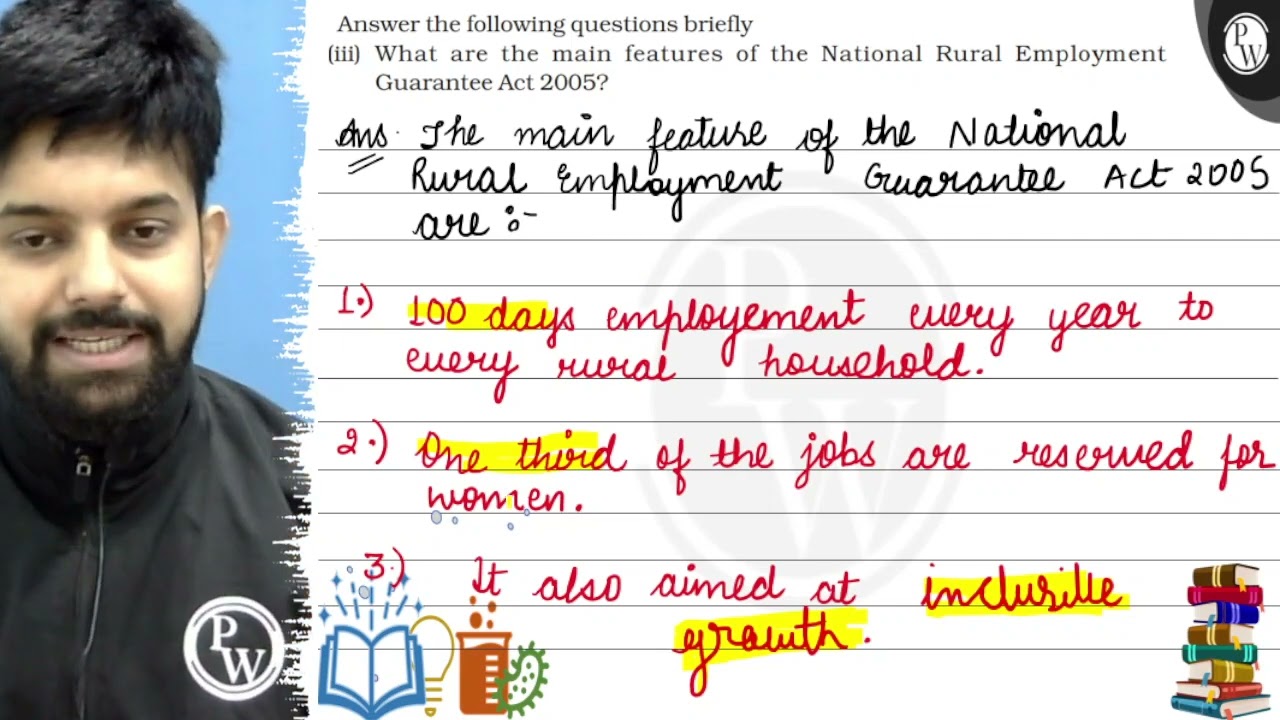 Answer the following questions briefly
(iii) What are the main features of the National Rural Employment
Guarantee Act 2005?
Ans. The main feature of the National
Rural Employment Guarantee Act 2005
are :-
1.) 100 days employement every year to
every rural household.
2.) One third of the jobs are reserved for
women.
3.) It also aimed at inclusive
growth.
PW
PW
PW